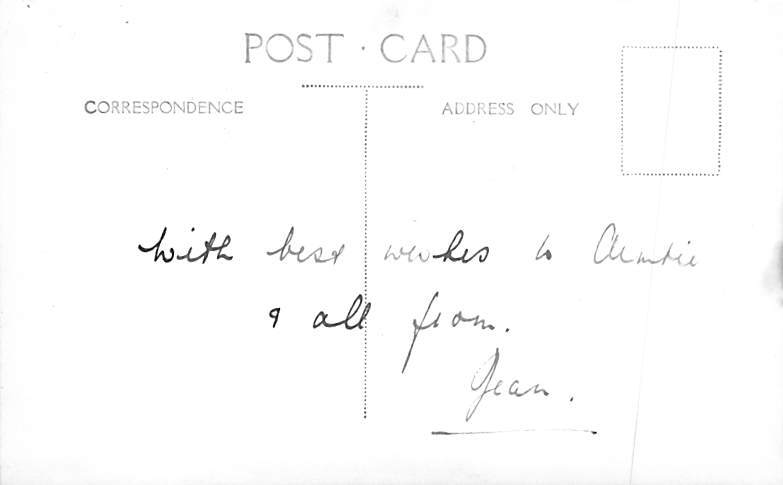 POST · CARD
CORRESPONDENCE
ADDRESS ONLY
With best wishes to Auntie
& all from.
Jean.